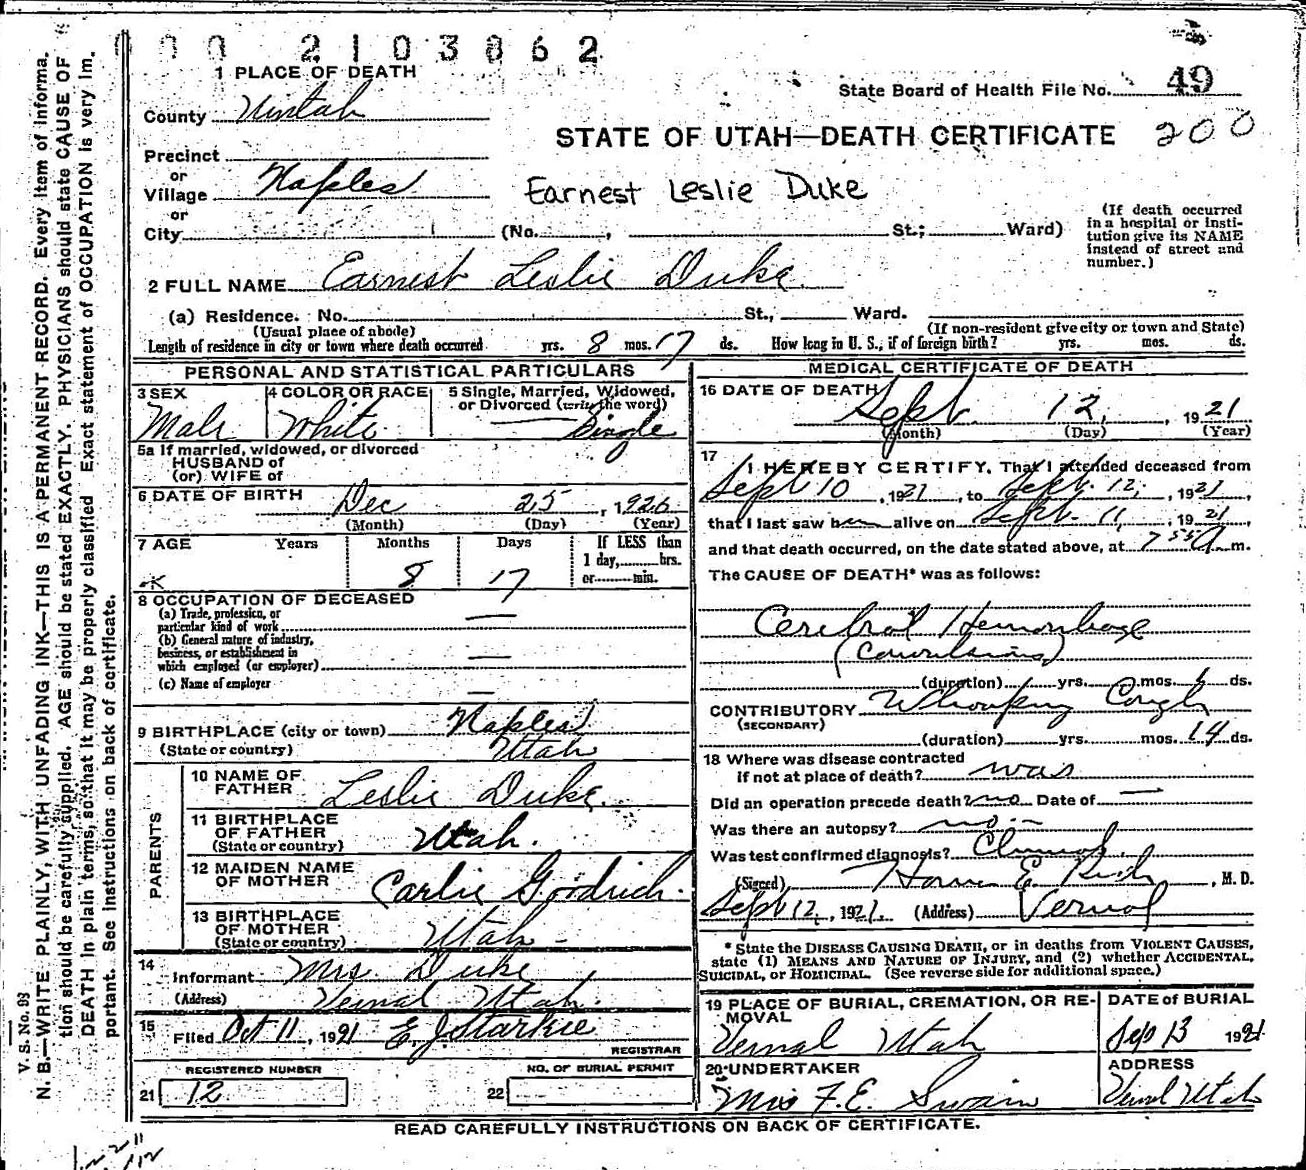 0 0 0 2 1 0 3 8 6 2
1 PLACE OF DEATH
County Uintah
State Board of Health File No. 49
STATE OF UTAH—DEATH CERTIFICATE 200
Precinct
or
Village Naples
Earnest Leslie Duke
or
City (No. , St.; Ward)
(If death occurred in a hospital or insti-
tution give its NAME
instead of street and
number.)
2 FULL NAME Earnest Leslie Duke
(a) Residence. No. St., Ward.
(Usual place of abode)
(If non-resident give city or town and State)
Length of residence in city or town where death occurred yrs. 8 mos. 17 ds. How long in U. S., if of foreign birth? yrs. mos. ds.
PERSONAL AND STATISTICAL PARTICULARS
3 SEX
Male
4 COLOR OR RACE
White
5 Single, Married, Widowed,
or Divorced (write the word)
Single
5a If married, widowed, or divorced
HUSBAND of
(or) WIFE of
6 DATE OF BIRTH Dec 25, 1920
(Month) (Day) (Year)
7 AGE Years Months Days If LESS than
1 day, hrs.
or min.
8 17
8 OCCUPATION OF DECEASED
(a) Trade, profession, or
particular kind of work —
(b) General nature of industry,
business, or establishment in
which employed (or employer) —
(c) Name of employer —
9 BIRTHPLACE (city or town) Naples
(State or country) Utah
PARENTS
10 NAME OF
FATHER Leslie Duke
11 BIRTHPLACE
OF FATHER
(State or country) Utah.
12 MAIDEN NAME
OF MOTHER Carlie Goodrich.
13 BIRTHPLACE
OF MOTHER
(State or country) Utah —
14
Informant Mrs Duke
(Address) Vernal Utah.
15
Filed Oct 11, 1921 E. J. Starkie
REGISTRAR
REGISTERED NUMBER
21 12
NO. OF BURIAL PERMIT
22
MEDICAL CERTIFICATE OF DEATH
16 DATE OF DEATH
Sept. 12, 1921
(Month) (Day) (Year)
17
I HEREBY CERTIFY, That I attended deceased from
Sept 10, 1921, to Sept. 12, 1921,
that I last saw him alive on Sept. 11, 1921,
and that death occurred, on the date stated above, at 7 55 A m.
The CAUSE OF DEATH* was as follows:
Cerebral Hemorrhage
(Convulsions)
(duration) yrs. mos. ds.
CONTRIBUTORY Whooping Cough
(SECONDARY)
(duration) yrs. mos. 14 ds.
18 Where was disease contracted
if not at place of death? was
Did an operation precede death? no Date of —
Was there an autopsy? no —
Was test confirmed diagnosis? Clinical.
(Signed) E. , M. D.
Sept 12, 1921. (Address) Vernal
* State the DISEASE CAUSING DEATH, or in deaths from VIOLENT CAUSES,
state (1) MEANS AND NATURE OF INJURY, and (2) whether ACCIDENTAL,
SUICIDAL, or HOMICIDAL. (See reverse side for additional space.)
19 PLACE OF BURIAL, CREMATION, OR RE-
MOVAL
Vernal Utah
DATE of BURIAL
Sep 13 1921
20 UNDERTAKER
Mrs F. E. Swain
ADDRESS
Vernal Utah
READ CAREFULLY INSTRUCTIONS ON BACK OF CERTIFICATE.
V. S. No. 83
N. B.—WRITE PLAINLY, WITH UNFADING INK—THIS IS A PERMANENT RECORD. Every item of informa-
tion should be carefully supplied. AGE should be stated EXACTLY. PHYSICIANS should state CAUSE OF
DEATH in plain terms, so that it may be properly classified. Exact statement of OCCUPATION is very im-
portant. See instructions on back of certificate.